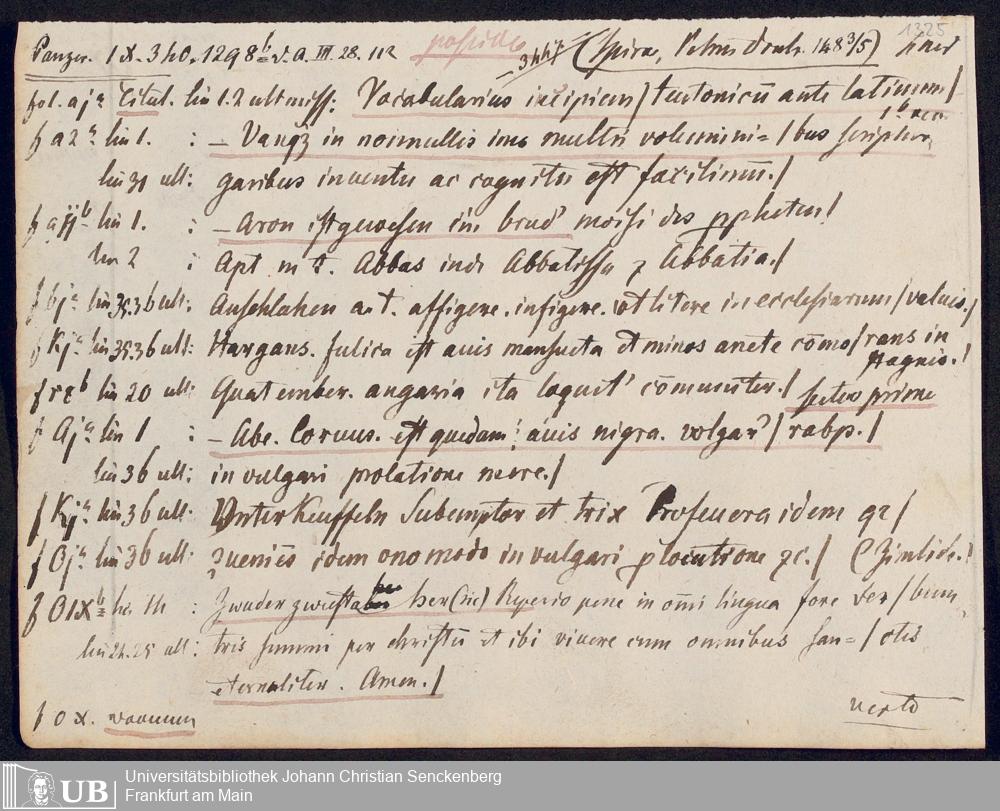 1325
Panzer. IX. 340. 1298b = d. A. III. 28. 112 3447 (Spira, Petrus Drach. 1483/5)
fol. aja Titul. lin 1.2 ult miss: Vocabularius incipiens / teutonicū ante latinum /
f a2a lin 1. : – Vanqz in nonnullis imo multis volumini= / bus scriptura
lin 31 ult: garibus inuentu ac cognitū est facilimū. /
f ajjb lin 1. : – Aron ist gewesen ein brud' moisi des ppheten /
lin 2 : Apt m t. Abbas inde Abbatissa z Abbatia. /
f bja lin 35.36 ult: Anschlahen a. t. affigere. infigere. vt litere in ecclesiarum / valuis. /
f Kja lin 35.36 ult: Hargans. fulica est auis mansueta et minos anete cōmo / rans in stagnis. /
f rzb lin 20 ult: Quatember. angaria ita loquet' cōmuniter. /
f Aja lin 1 : – Abe. Coruus. est quedam auis nigra. volgar' / rabp. /
lin 36 ult: in vulgari prolatione mere. /
f Kja lin 36 ult: Vnterkeuffeln Subemptor et trix Profeuera idem qz /
f Oja lin 36 ult: zueniēs idem onomodo in vulgari plocutione zc. /
f OIXb lin : Zwuder her (sic) Reperio pene in om̄i lingua fore ver / bum
lin 24.25 ult: tris summi per christū et ibi viuere cum omnibus san= / ctis
eternaliter. Amen. /
f o x. vacuum
verte
UB
Universitätsbibliothek Johann Christian Senckenberg
Frankfurt am Main